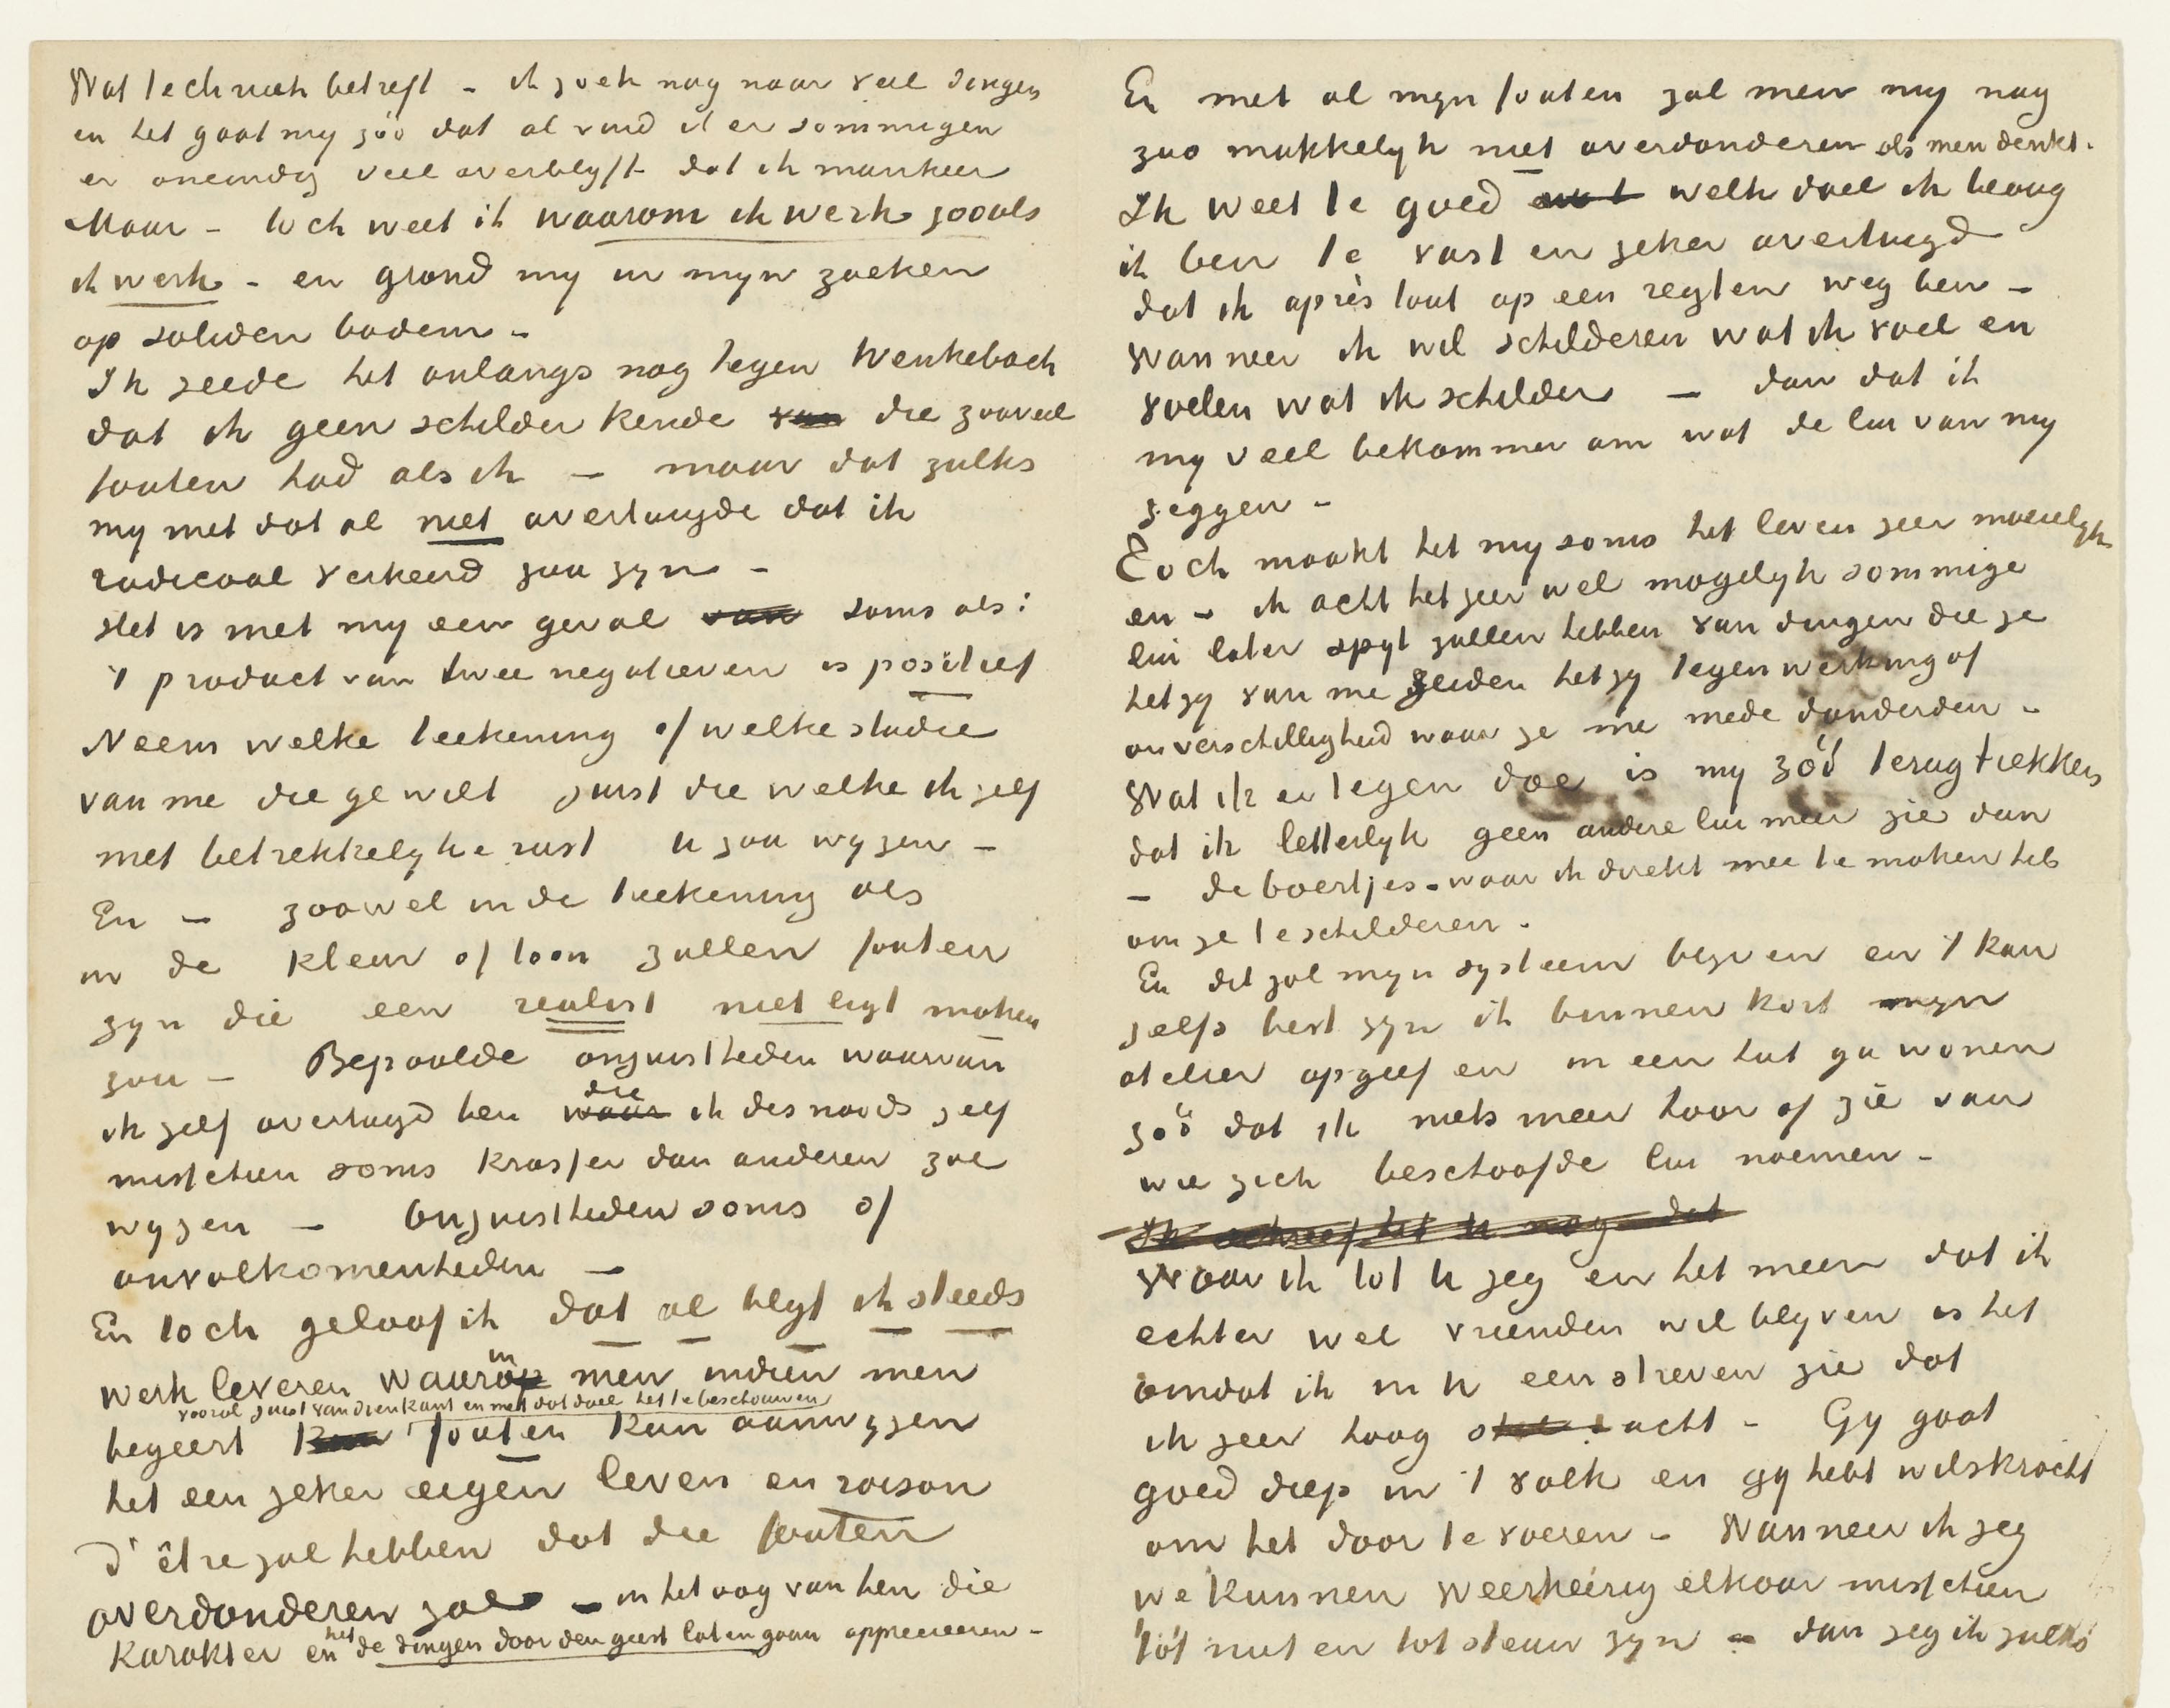 Wat techniek betreft – ik zoek nog naar veel dingen
en het gaat my zóó dat al vind ik er sommigen
er oneindig veel overblyft dat ik mankeer
Maar – toch weet ik waarom ik werk zooals
ik werk – en grond my in myn zoeken
op soliden bodem –
Ik zeide het onlangs nog tegen Wenkebach
dat ik geen schilder kende van die zooveel
fouten had als ik – maar dat zulks
my met dat al niet overtuigde dat ik
radicaal verkeerd zou zyn –
Het is met my een geval van soms als:
't product van twee negatieven is positief
Neem welke teekening of welke studie
van me die ge wilt juist die welke ik zelf
met betrekkelyke rust U zou wyzen –
En – zoowel in de teekening als
in de kleur of toon zullen fouten
zyn die een realist niet ligt maken
zou – Bepaalde onjuistheden waarvan
ik zelf overtuigd ben waar die ik des noods zelf
misschien soms krasser dan anderen zal
wyzen – Onjuistheden soms of
onvolkomenheden –
En toch geloof ik dat al blyf ik steeds
werk leveren waarop in men indien men
vooral juist van dien kant en met dat doel het te beschouwen
begeert kan fouten kan aanwyzen
het een zeker eigen leven en raison
d'être zal hebben dat die fouten
overdonderen zal – in het oog van hen die
karakter en het de dingen door den geest laten gaan apprecieeren –
En met al myn fouten zal men my nog
zoo makkelyk niet overdonderen als men denkt.
Ik weet te goed wat welk doel ik beoog
ik ben te vast en zeker overtuigd
dat ik après tout op een regten weg ben –
Wanneer ik wil schilderen wat ik voel en
voelen wat ik schilder – dan dat ik
my veel bekommer om wat de lui van my
zeggen –
Toch maakt het my soms het leven zeer moeielyk
en – ik acht het zeer wel mogelyk sommige
lui later spyt zullen hebben van dingen die ze
hetzy van me zeiden hetzy tegenwerking of
onverschilligheid waar ze me mede donderden –
Wat ik er tegen doe is my zóó terug trekken
dat ik letterlyk geen andere lui meer zie dan
– de boertjes – waar ik direkt mee te maken heb
om ze te schilderen.
En dit zal myn systeem blyven en 't kan
zelfs best zyn ik binnen kort myn
atelier opgeef en in een hut ga wonen
zóó dat ik niets meer hoor of zie van
wie zich beschaafde lui noemen –
Ik schreef het U nog dat
Waar ik tot U zeg en het meen dat ik
echter wel vrienden wil blyven is het
omdat ik in U een streven zie dat
ik zeer hoog acht – Gy gaat
goed diep in 't volk en gy hebt wilskracht
om het door te voeren – Wanneer ik zeg
we kunnen weerkeerig elkaar misschien
tot nut en tot steun zyn – dan zeg ik zulks